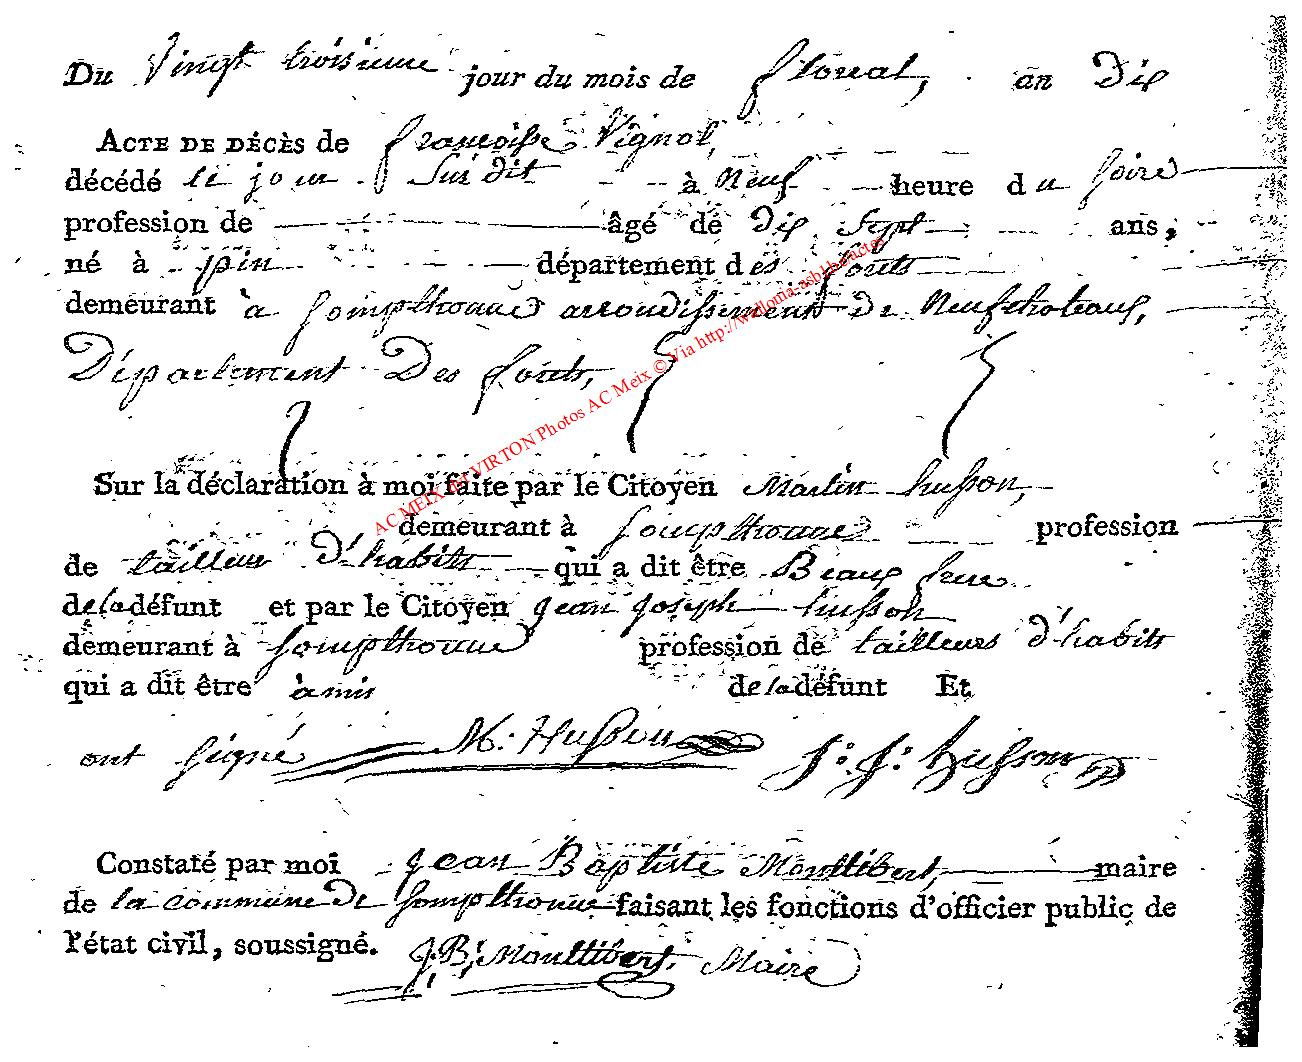 Du Vingt troisieme jour du mois de floreal, an Dix
ACTE DE DÉCÈS de françoisse Vignol,
décédé le jour Sus dit à Neuf heure du soire
profession de âgé de Dix Sept ans,
né à pin département des forets
demeurant à Sompthonne arrondissement de Neufchateaux,
Département Des forets,
Sur la déclaration à moi faite par le Citoyen Martin husson,
demeurant à Sompthonne profession
de tailleur D'habits qui a dit être Beaux frere
de la défunt et par le Citoyen jean joseph husson
demeurant à Sompthonne profession de tailleurs d'habits
qui a dit être àmis de la défunt Et
ont signé M. Husson J. J. husson
Constaté par moi jean Baptiste Monttibert, maire
de la commune De Sompthonne faisant les fonctions d'officier public de
l'état civil, soussigné. J. B. Monttibert, Maire
AC MEIX dt VIRTON Photos AC Meix © Via http://wallonia-asbl.be/actes